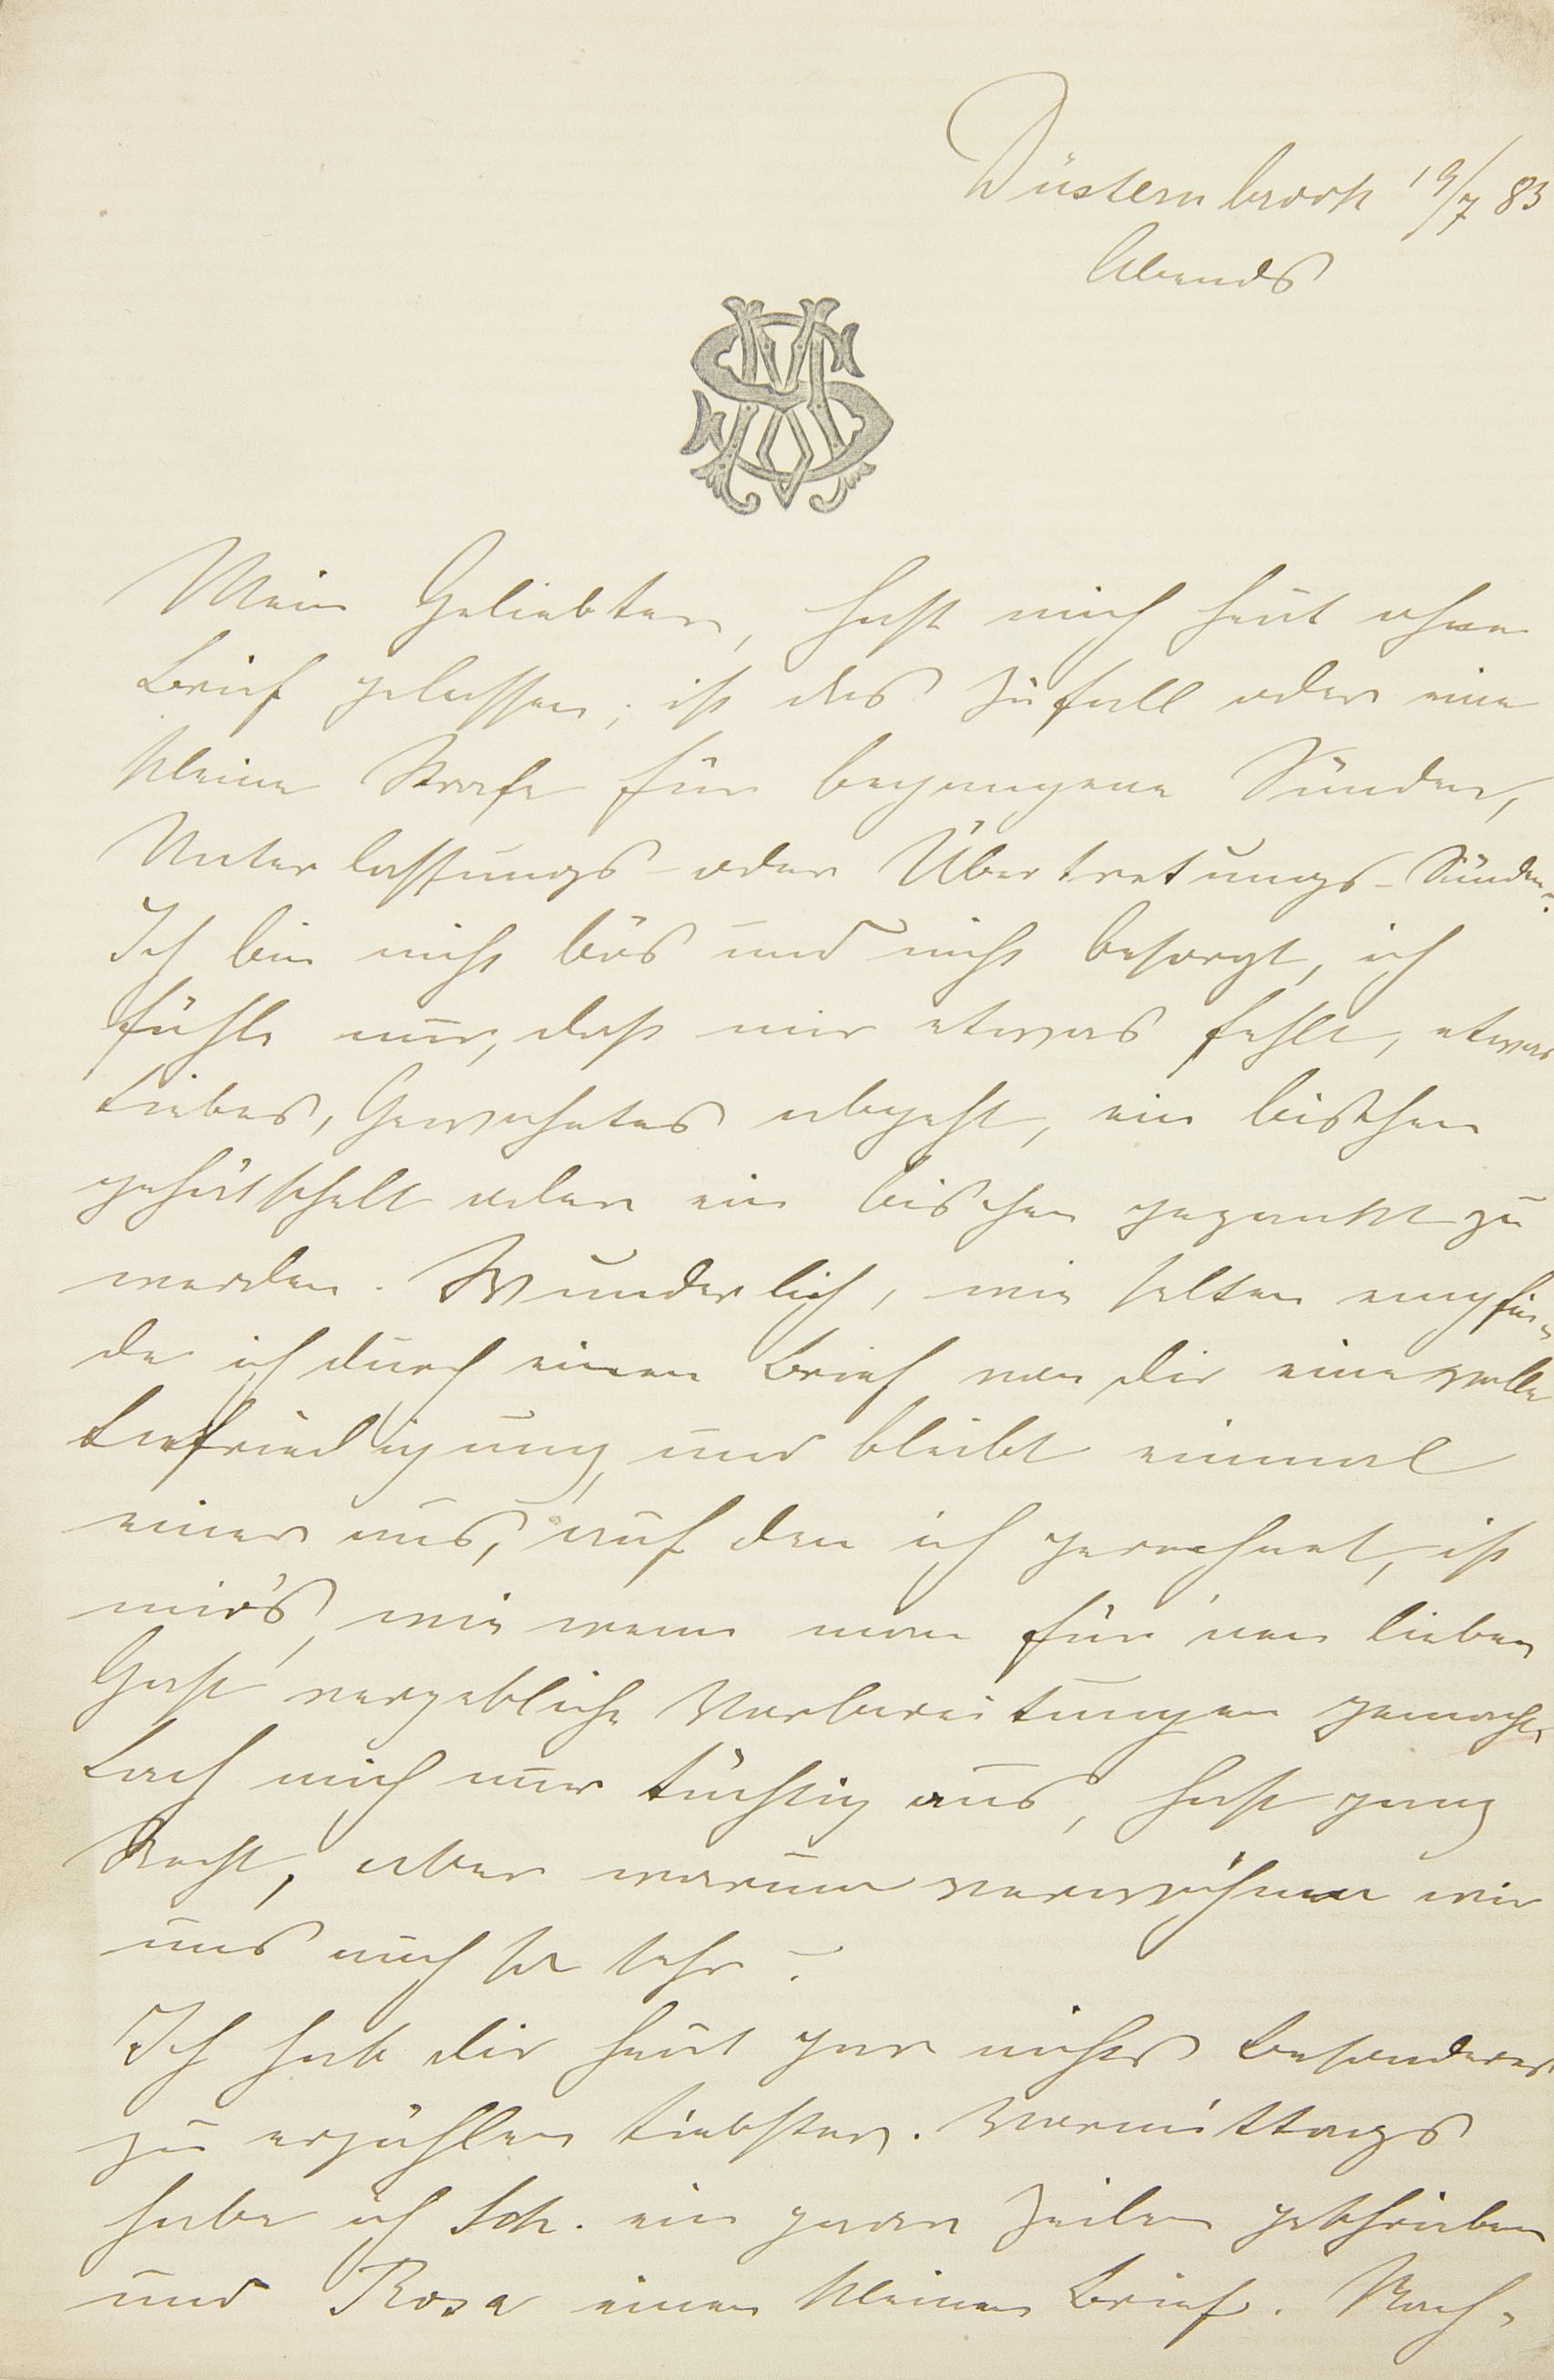 Düsternbrook 19/7 83
Abends
MS
Mein Geliebter, hast mich heut ohne
Brief gelassen; ist das Zufall oder eine
kleine Strafe für begangene Sünden,
Unterlassungs- oder Übertretungs-Sünden?
Ich bin nicht bös und nicht besorgt, ich
fühle nur, daß mir etwas fehlt, etwas
Liebes, Gewohntes abgeht, ein bischen
gehätschelt oder ein bischen gezankt zu
werden. Wunderlich, wie selten empfin-
de ich durch einen Brief von dir eine volle
Befriedigung, und bleibt einmal
einer aus, auf den ich gerechnet, ist
mir's, wie wenn man für 'nen lieben
Gast vergebliche Vorbereitungen gemacht.
Lach mich nur tüchtig aus, hast ganz
Recht, aber warum verwöhnen wir
uns auch so sehr?
Ich hab dir heut gar nichts Besonderes
zu erzählen Liebster. Vormittags
habe ich Sch. ein paar Zeilen geschrieben
und Rosa einen kleinen Brief. Nach-